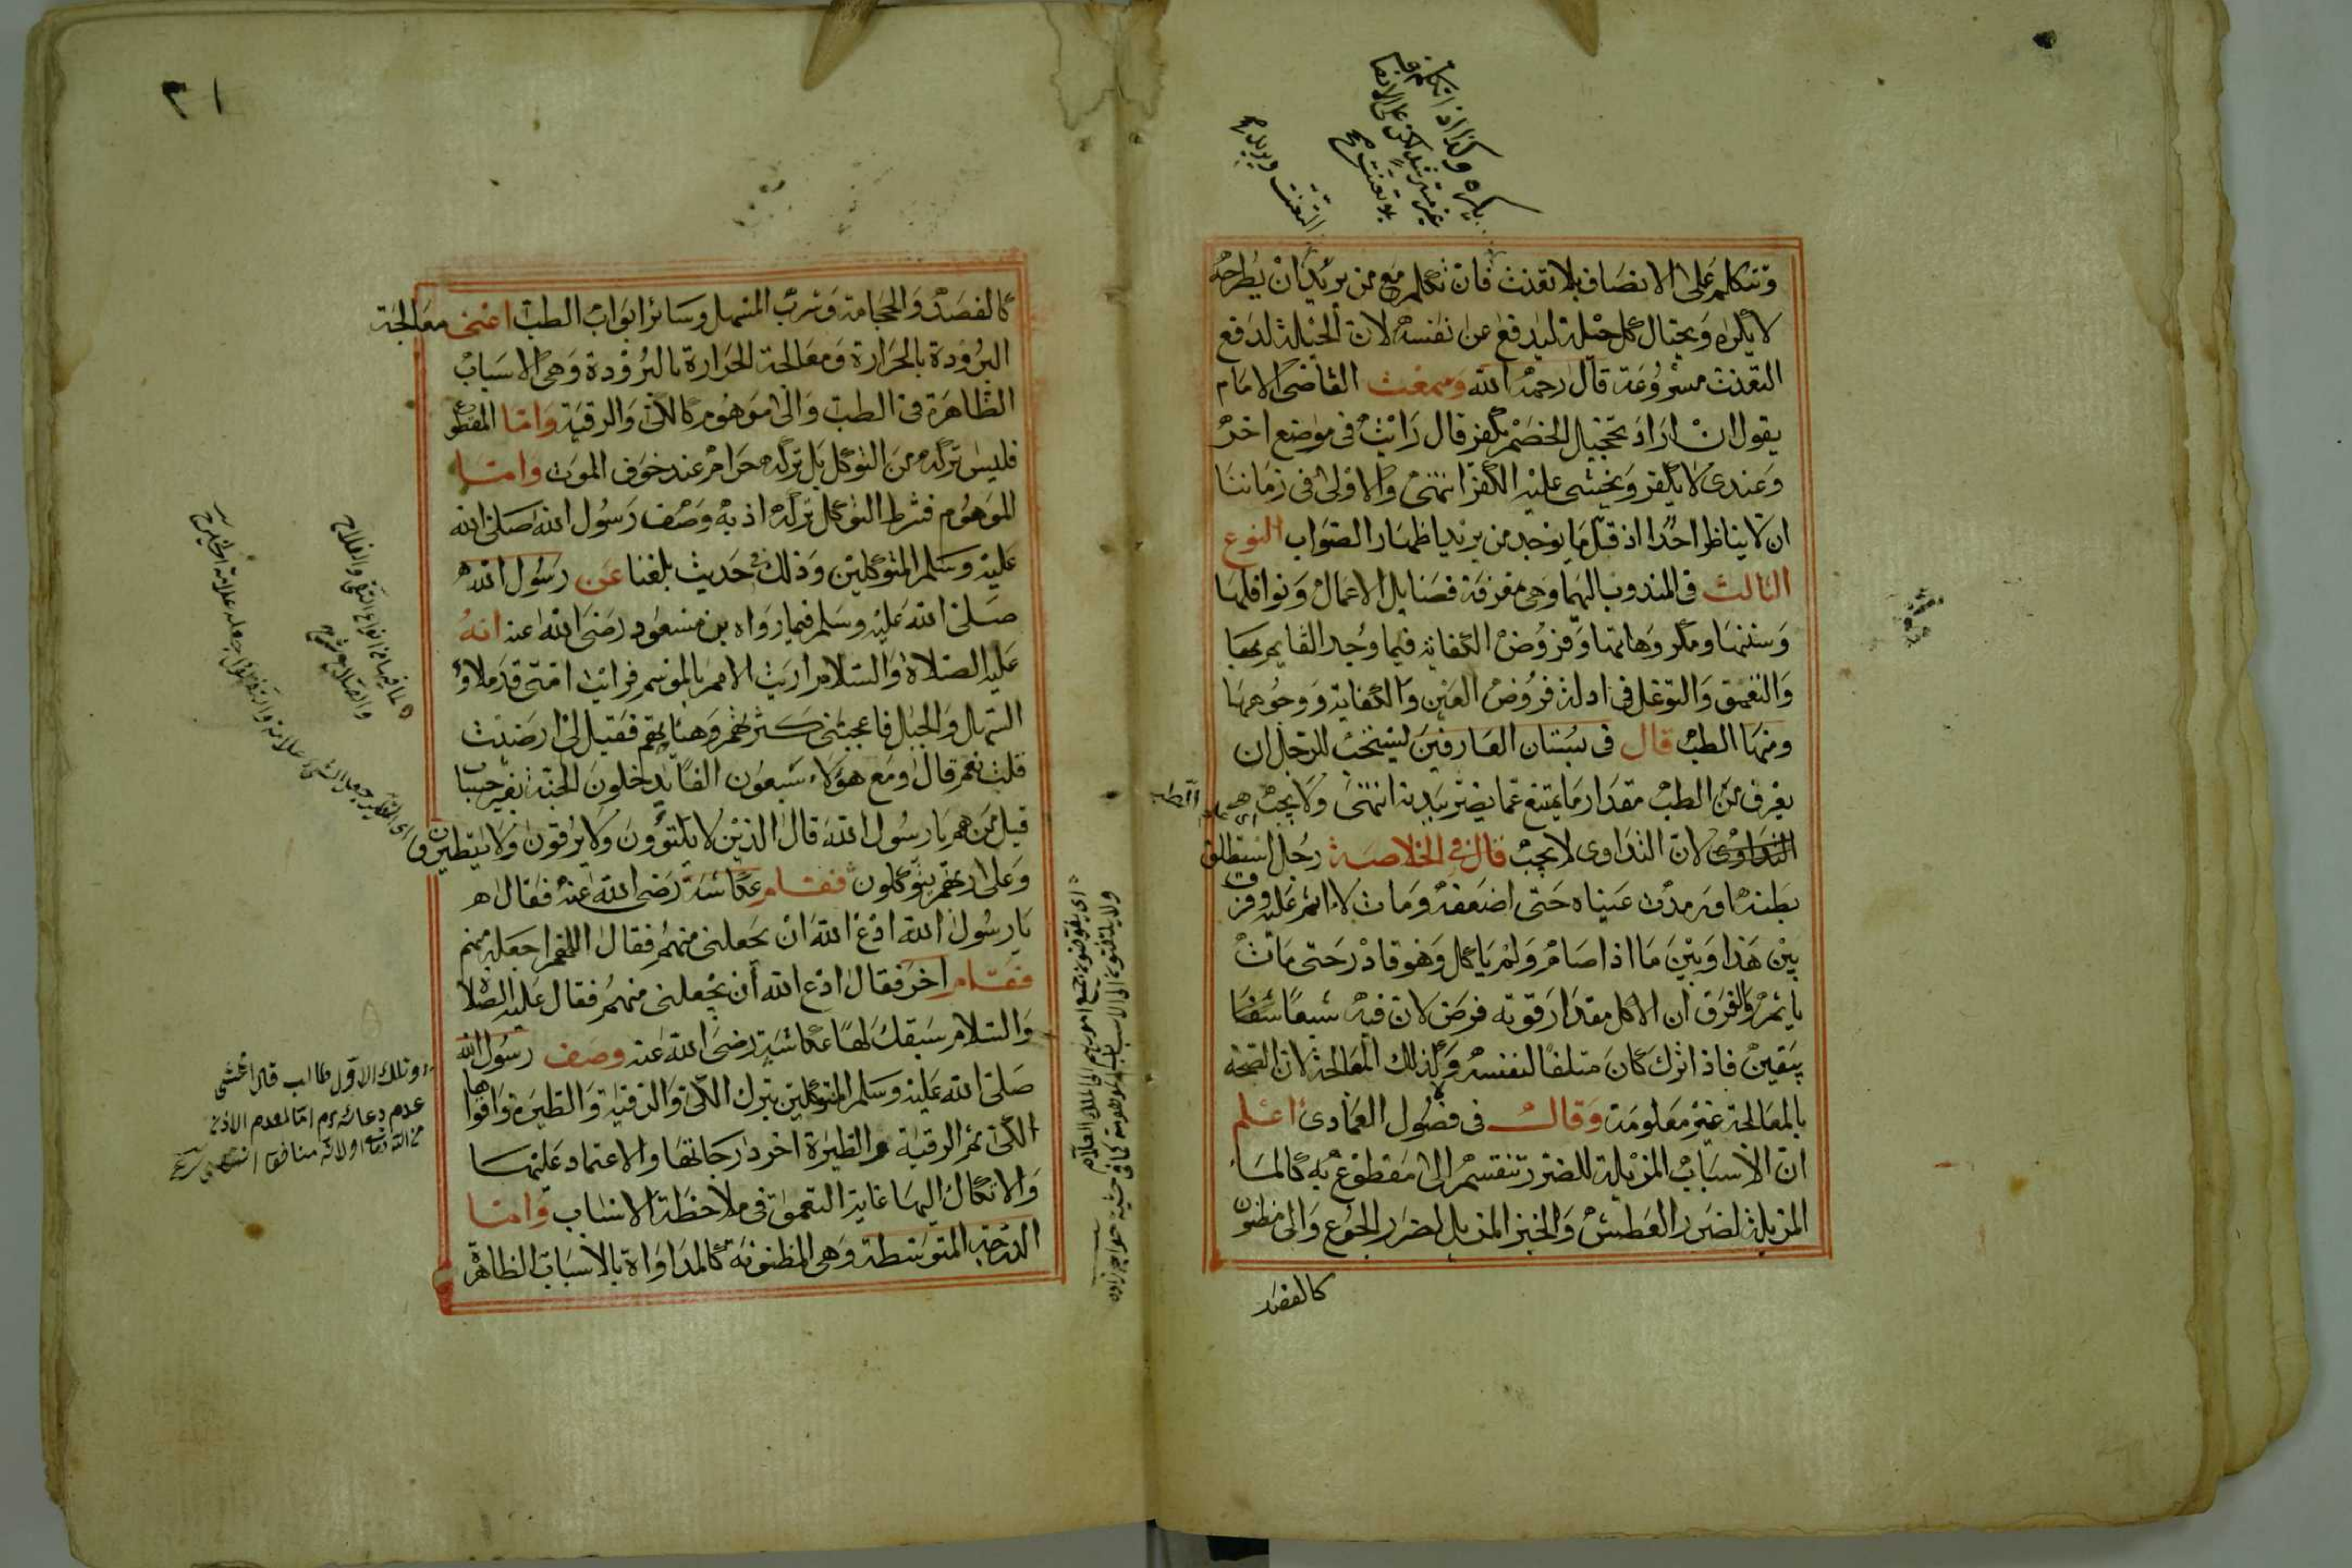 وتتكلم على الانصاف بلا تعنت فان تكلم مع من يريد ان يطرحه
لا يكره ويحتال كل حيلة ليدفع عن نفسه لان الحيلة لدفع
التعنت مشروعة قال رحمه الله وسمعت القاضي الامام
يقول ان اراد تخجيل الخصم يكفر قال رايت في موضع اخر
وعندى لا يكفر ويخشى عليه الكفر انتهى والاولى في زماننا
ان لا يناظر احدا اذ قل ما يوجد من يريد اظهار الصواب النوع
الثالث في المندوب اليها وهي معرفة فضايل الاعمال ونوافلها
وسننها ومكروهاتها وفروض الكفاية فيما وجد القايم بها
والتعمق والتوغل في ادلة فروض العين والكفاية ووجوهها
ومنها الطب قال في بستان العارفين يستحب للرجل ان
يعرف من الطب مقدار ما يمتنع عما يضر ببدنه انتهى ولا يجب
التداوى لان التداوى لا يجب قال في الخلاصة رجل استطلق
بطنه او رمدت عيناه حتى اضعفه ومات لا اثم عليه وفرق
بين هذا وبين ما اذا صام ولم ياكل وهو قادر حتى مات
ياثم والفرق ان الاكل مقدار قوته فرض لان فيه شبعا شفا
بيقين فاذا ترك كان متلفا لنفسه ولا كذلك المعالجة لان الصحة
بالمعالجة غير معلومة وقال في فصول العمادى اعلم
ان الاسباب المزيلة للضرر تنقسم الى مقطوع به كالما
المزيلة لضرر العطش والخبز المزيل لضرر الجوع والى مظنون
كالفصد
٢١
كالفصد والحجامة وشرب المسهل وسائر ابواب الطب اعنى معالجة
البرودة بالحرارة ومعالجة الحرارة بالبرودة وهي الاسباب
الظاهرة في الطب والى موهوم كالكي والرقية واما المقطوع
فليس تركه من التوكل بل تركه حرام عند خوف الموت واما
الموهوم فشرط التوكل تركه اذ به وصف رسول الله صلى الله
عليه وسلم المتوكلين وذلك في حديث بلغنا عن رسول الله
صلى الله عليه وسلم فيما رواه بن مسعود رضى الله عنه انه
عليه الصلاة والسلام اريت الامم بالموسم فرايت امتى قد ملاوا
السهل والجبل فاعجبتنى كثرتهم وهيئاتهم فقيل لي ارضيت
قلت نعم قال ومع هؤلاء سبعون الفا يدخلون الجنة بغير حساب
قيل من هم يا رسول الله قال الذين لا يكتوون ولا يرقون ولا يتطيرون
وعلى ربهم يتوكلون فقام عكاشة رضى الله عنه فقال
يا رسول الله ادع الله ان يجعلنى منهم فقال اللهم اجعله منهم
فقام اخر فقال ادع الله ان يجعلنى منهم فقال عليه الصلاة
والسلام سبقك لها عكاشة رضى الله عنه وصف رسول الله
صلى الله عليه وسلم المتوكلين بترك الكي والرقية والطيرة واقواها
الكي ثم الرقية والطيرة اخر درجاتها والاعتماد عليها
والاتكال اليها غاية التعمق في ملاحظة الاسباب واما
الدرجة المتوسطة وهي المظنونة كالمداواة بالاسباب الظاهرة